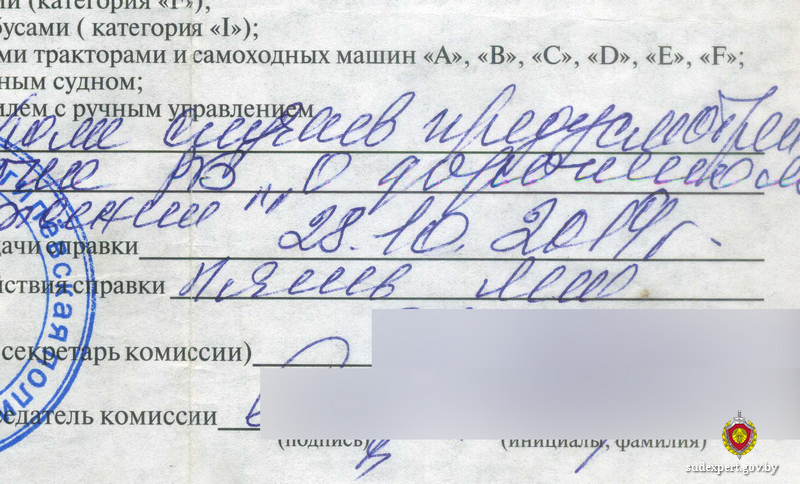 ми (категория «F»);
бусами ( категория «I»);
ыми тракторами и самоходных машин «A», «B», «C», «D», «E», «F»;
ным судном;
илем с ручным управлением
кроме случаев предусмотрен
РБ „О дорожном
движении" 28.10.2014г.
дачи справки
йствия справки пять лет
секретарь комиссии)
едатель комиссии
(подпись) (инициалы, фамилия)
гилёвская поли
sudexpert.gov.by